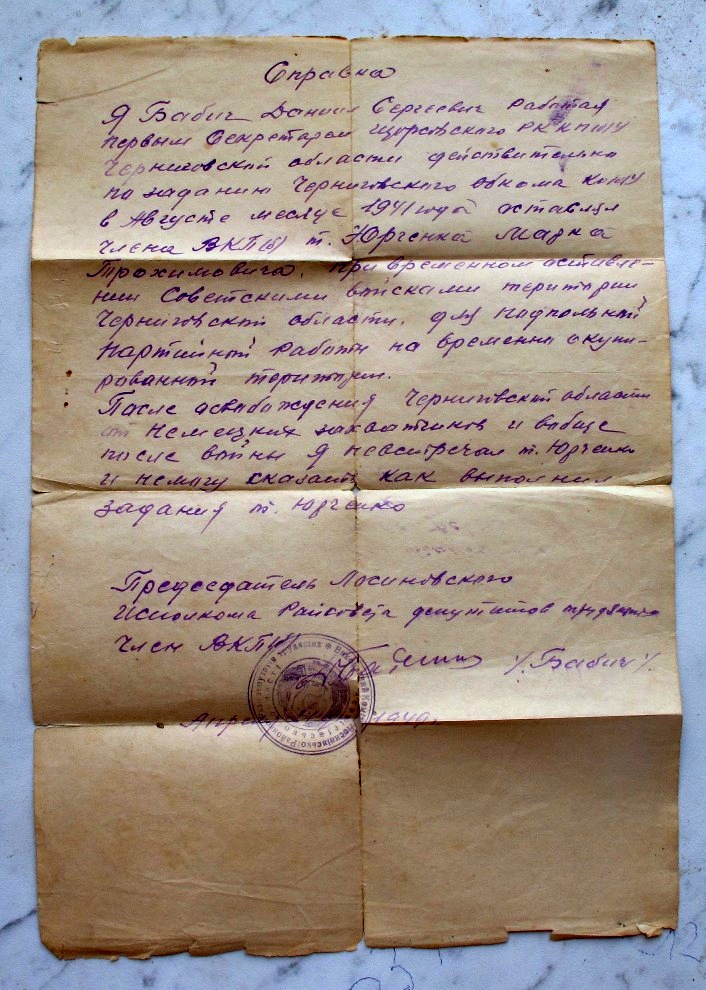 Справка
Я Бабич Даниил Сергеевич работая
первым секретарем Щорсовского РК КП/б/У
Черниговской области действительно
по заданию Черниговского обкома КП/б/У
в Августе месяце 1941 года оставлял
члена ВКП/б/ т. Юрченка Марка
Трохимовича, при временном оставле-
нии Советскими войсками територии
Черниговской области, для подпольной
партийной работы на временно окупи-
рованной територии.
После освабаждения Черниговской области
от немецких захватчиков и вобще
после войны я невстречал т. Юрченко
и немогу сказать как выполнил
задания т. Юрченко
Председатель Лосиновского
исполкома Райсовета депутатов трудящих
член ВКП/б/ /Бабич/.